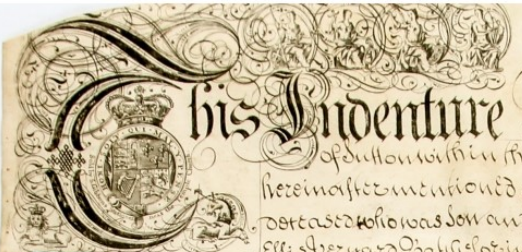 This Indenture
of Sutton within th
hereinafter mentioned
deceased who was Son an